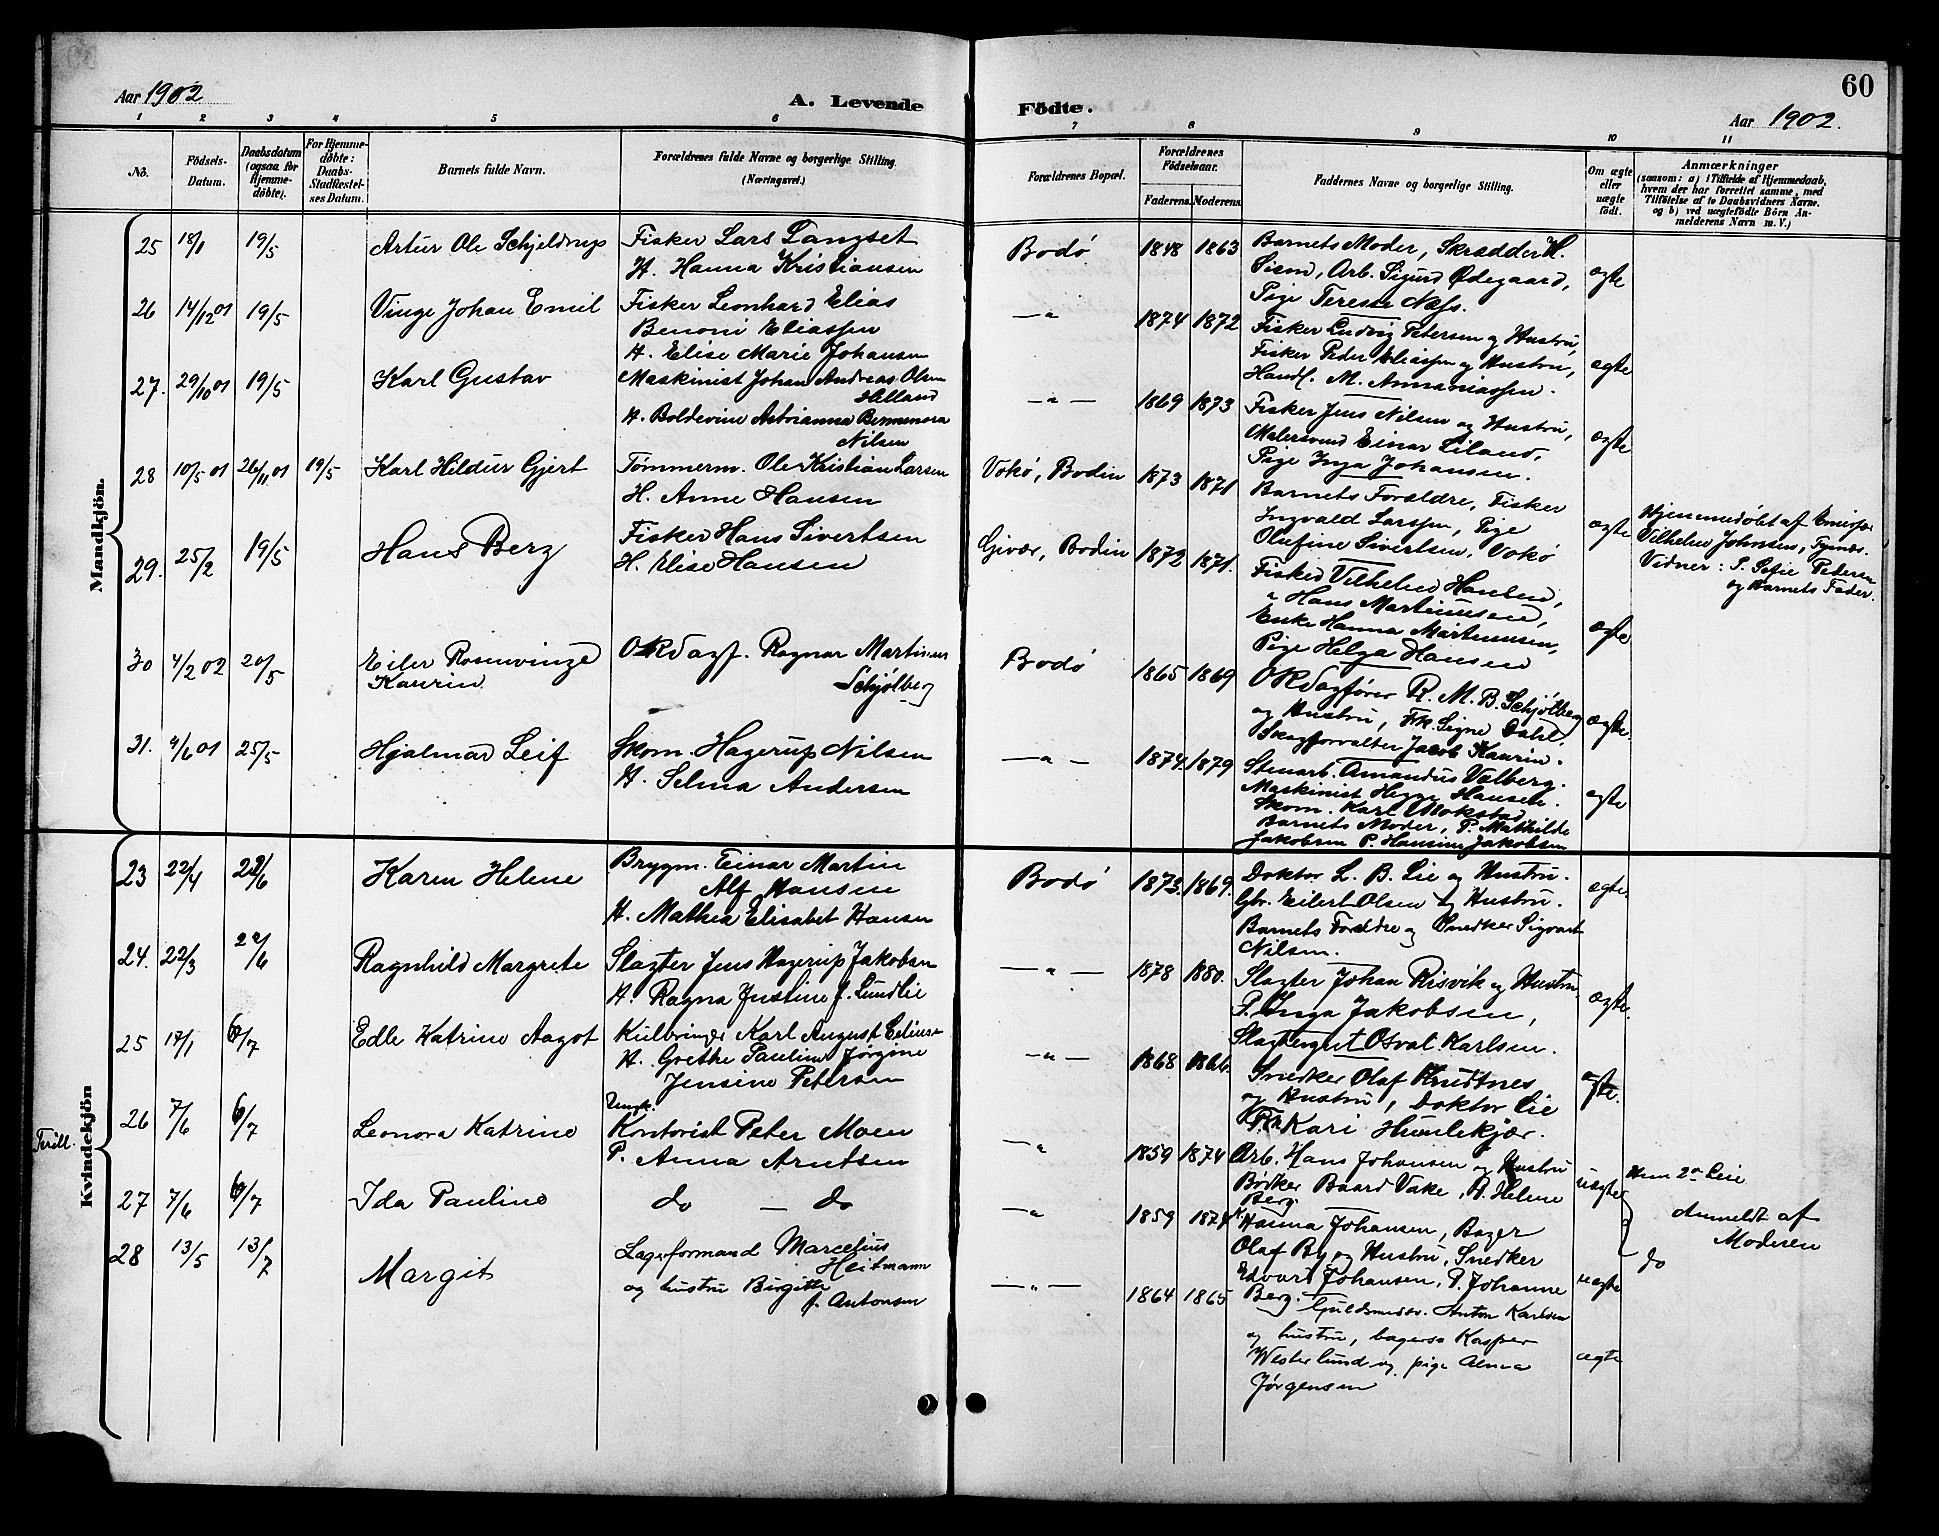 Aar 1902
A. Levende Födte.
60
Aar 1902.
1 2 3 4 5 6 7 8 9 10 11
No.
Födsels-Datum.
Daabsdatum (ogsaa for Hjemme-döbte).
For Hjemme-döbte: Daabs-Stadfæstel-ses Datum.
Barnets fulde Navn.
Forældrenes fulde Navne og borgerlige Stilling. (Næringsvei.)
Forældrenes Bopæl.
Forældrenes Födselsaar.
Faderens. Moderens.
Faddernes Navne og borgerlige Stilling.
Om ægte eller uægte födt.
Anmærkninger
(saasom: a) i Tilfælde af Hjemmedaab,
hvem der har forrettet samme, med
Tilföielse af to Daabsvidners Navne.
og b) ved uægtefödte Börn An-
melderens Navn m. V.)
Mandkjön.
25 18/1 19/5 Artur Ole Schjeldrup Fisker Lars Langset Bodö 1848 1863 Barnets Moder, Skrædder H.
H. Hanna Kristiansen Sism, Arb. Sigurd Ødegaard, ægte
Pige Terese Næss.
26 14/12 01 19/5 Vinge Johan Emil Fisker Leonhard Elias —"— 1874 1872 Fisker Ludvig Petersen og Hustru,
Benoni Eliassen Fisker Peder Eliassen og Hustru, ægte
H. Elise Marie Johansen Handl. M. Annaniassen.
27. 29/10 01 19/5 Karl Gustav Maskinist Johan Andreas Olsen —"— 1869 1873 Fisker Jens Nilsen og Hustru,
Helland Malersvend Einar Eiland, ægte
H. Boldevine Astrianna Pige Inga Johansen.
Nilsen
28 10/5 01 26/11 01 19/5 Karl Hildur Gjert Tömmerm. Ole Kristian Larsen Vokö, Bodin 1873 1871 Barnets Forældre, Fisker
H. Anne Hansen Ingvald Larssen, Pige ægte Hjemmedöbt af
Olufine Sivertsen, Vokö Vilhelm Johnsen,
Vidner: P. Sofie Pedersen
og Barnets Fader.
29. 25/2 19/5 Hans Berg Fisker Hans Sivertsen Givær, Bodin 1872 1871. Fisker Vilhelm Hansen,
H. Elise Hansen " Hans Martinussen,
Enke Hanna Martinussen, ægte
Pige Helga Hansen
30 4/2 02 20/5 Eiler Rosenvinge ORSagf. Ragnar Martinus Bodö 1865 1869 ORSagförer R. M. B. Schjölberg
Kaurin Schjölberg og Hustru, Frk Signe Dahl, ægte.
Skogforvalter Jacob Kaurin.
31. 4/6 01 25/5 Hjalmar Leif Skom. Hagerup Nilsen —"— 1874. 1879 Stenarb. Amandus Valberg.
H. Selma Andersen Maskinist Hegge Hansen. ægte
Skom. Karl Mokstad
Barnets Moder, P. Mathilde
Jakobsen P. Hansine Jakobsen
Kvindekjön
23 22/4 22/6 Karen Helene Brygm. Einar Martin Bodö 1873. 1869. Doktor L. B. Lie og Hustru.
Alf Hansen Gbr. Eilert Olsen og Hustru. ægte.
H. Mathea Elisabet Hansen Barnets Forældre og Snedker Sigvart
Nilsen.
24. 22/3 22/6 Ragnhild Margrete Slagter Jens Hagerup Jakobsen —"— 1878 1880. Slagter Johan Risvik og Hustru
H. Ragna Justine f. Lundlie P. Inga Jakobsen, ægte.
Slagtergut Osvat Karlsen.
25 17/1 6/7 Edle Katrine Aagot Kulbringer Karl August —"— 1868 1866. Snedker Olaf Knudtnes
H. Grethe Pauline Jørgine og Hustru, Doktor Lie ægte.
Jensine Petersen Frk Kari Hunlekjær.
Tvill.
26 7/6 6/7 Leonora Katrine Ungk. Kontorist Peter Moen " 1859 1874 Arb. Hans Johansen og Hustru
P. Anna Arntsen Bödker Baard Vake, P. Helene uægte Hun 2den Leie
Berg. Anmeldt af Moderen
27 7/6 6/7 Ida Pauline do — do —"— 1859 1874 Hanna Johansen, Bager
Olaf By og Hustru, Snedker do
Edvart Johansen, P. Johanne uægte
Berg.
28 13/5 13/7 Margit Lagerformand Marcelius —"— 1864 1865 Guldsmedsv. Anton Karlsen
Heitmann og hustru, bagersv Kasper
og hustru Birgitte Westerlund og pige Alma ægte
f. Antonsen Jørgensen